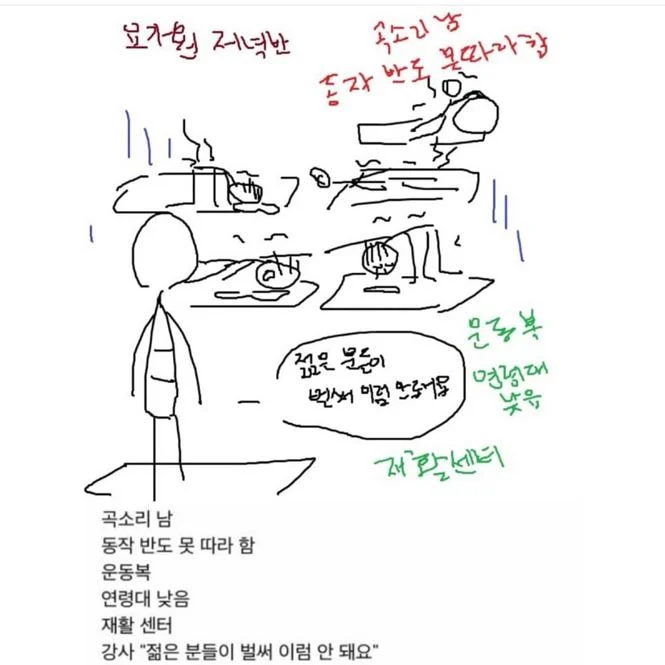 요가원 저녁반
곡소리 남
동작 반도 못따라함
젊은 분들이
벌써 이럼 안돼요
운동복
연령대
낮음
재활센터
곡소리 남
동작 반도 못 따라 함
운동복
연령대 낮음
재활 센터
강사 "젊은 분들이 벌써 이럼 안 돼요"